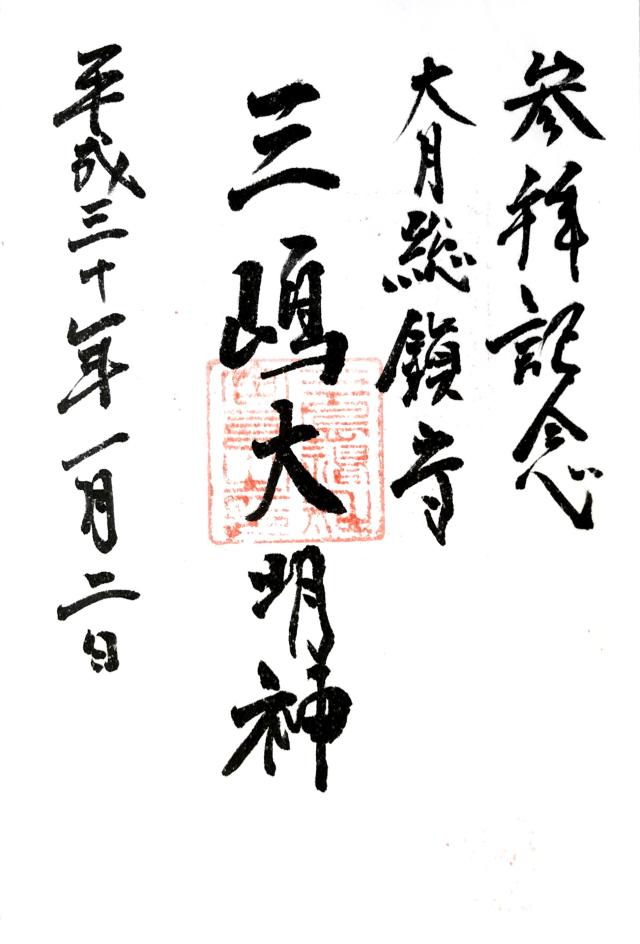 参拝記念
大月総鎮守
三嶋大明神
平成三十年一月二日